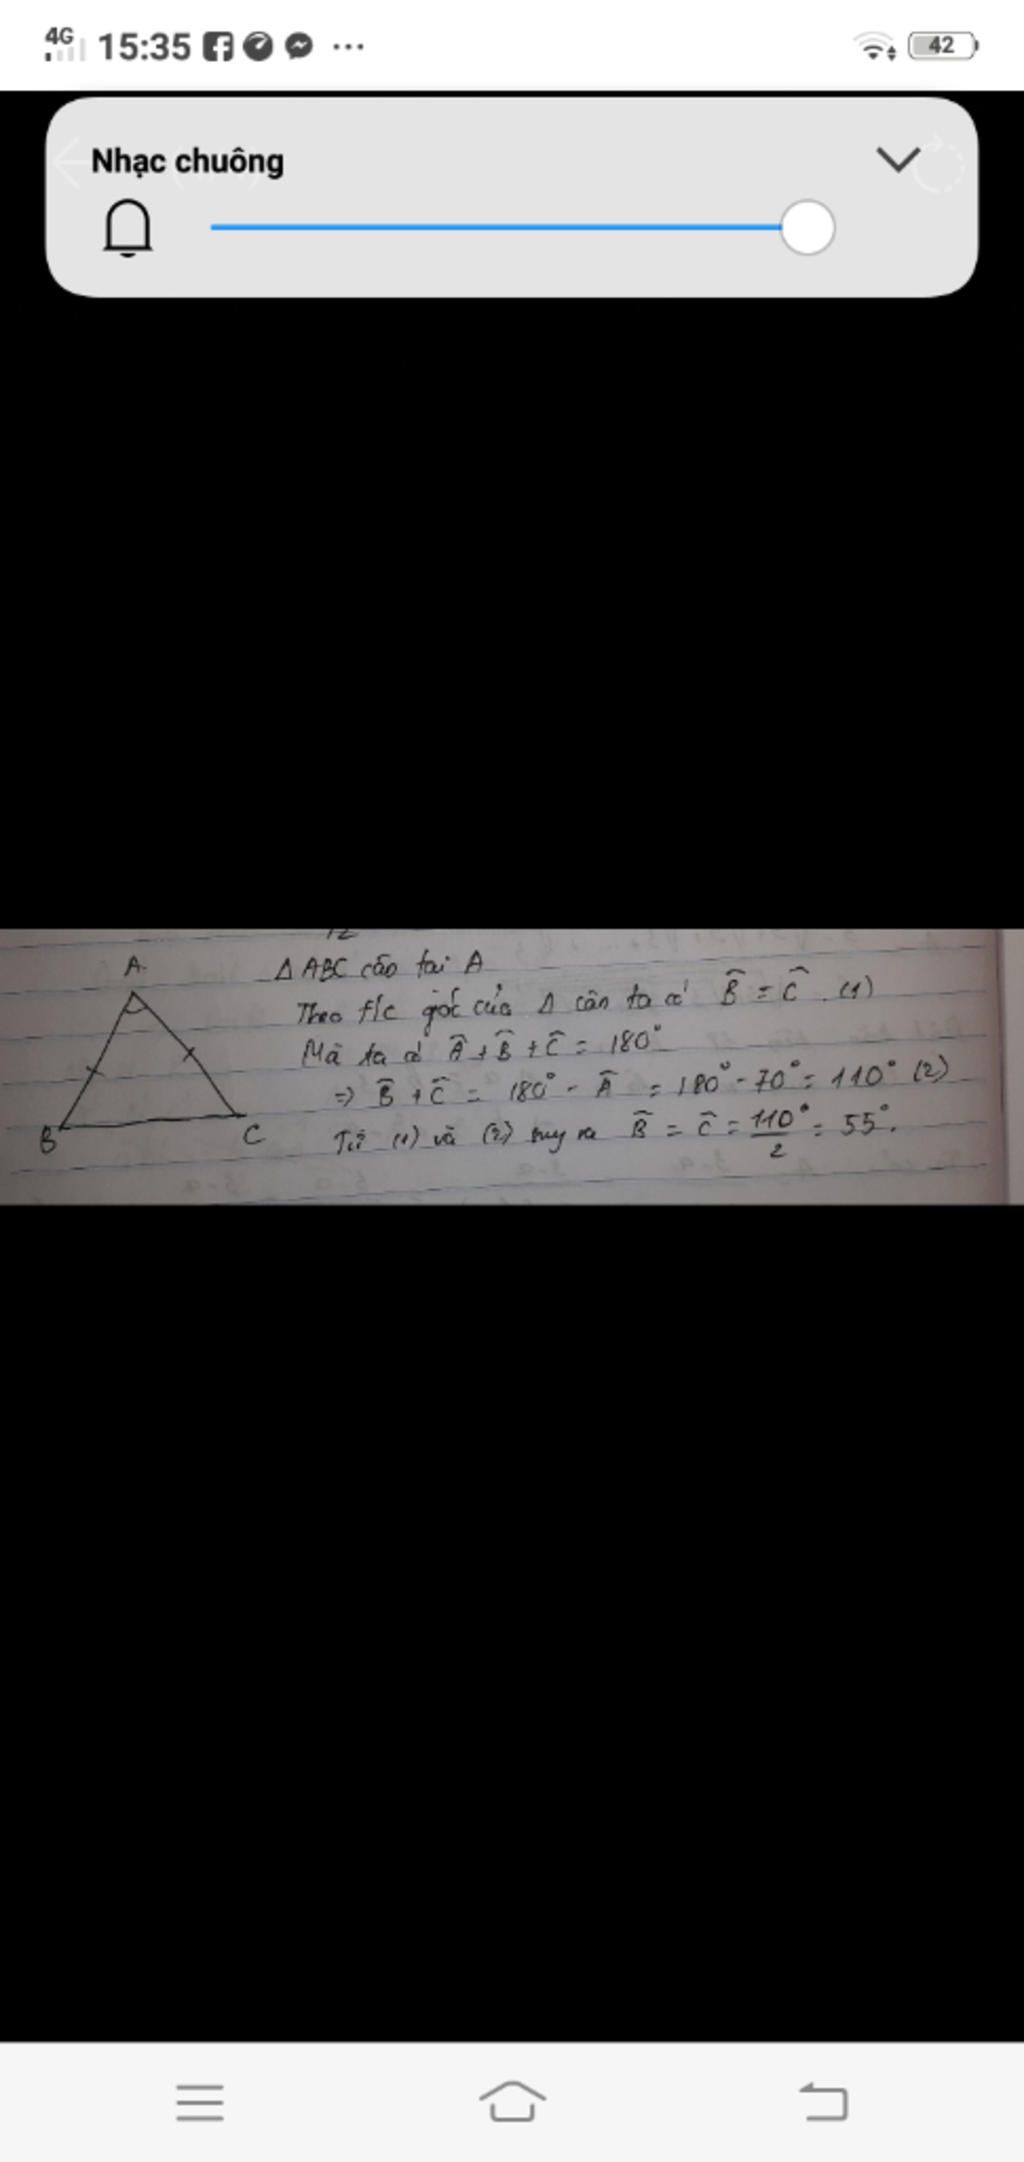 4G 15:35 ... 42
Nhạc chuông
A
Δ ABC cân tại A
Theo t/c góc của Δ cân ta có B̂ = Ĉ (1)
Mà ta có Â + B̂ + Ĉ = 180°
=> B̂ + Ĉ = 180° - Â = 180° - 70° = 110° (2)
B C
Từ (1) và (2) suy ra B̂ = Ĉ = 110°/2 = 55°.